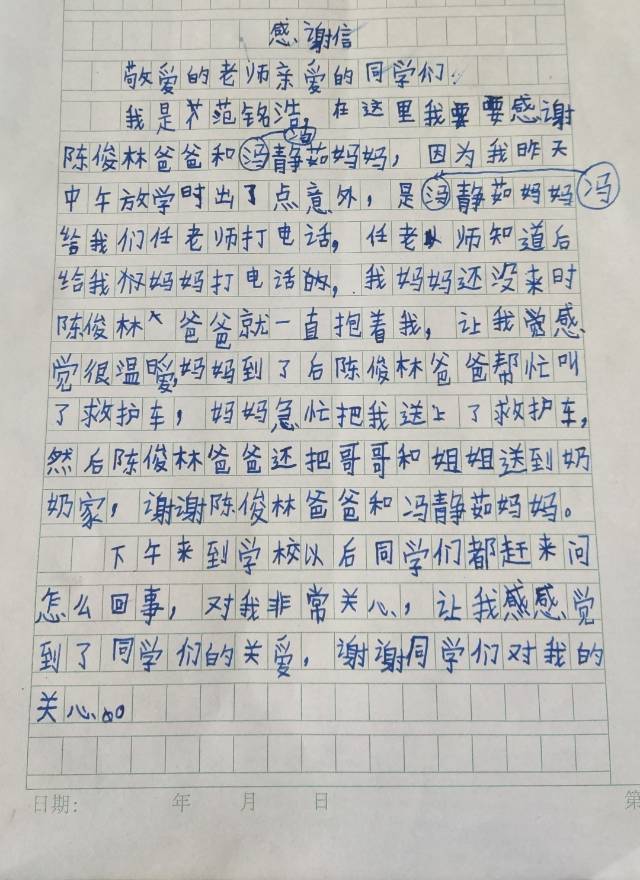 感谢信
敬爱的老师亲爱的同学们:
我是范铭浩,在这里我要要感谢
陈俊林爸爸和冯静茹妈妈,因为我昨天
中午放学时出了点意外,是冯静茹妈妈
给我们任老师打电话,任老师知道后
给我妈妈打电话的,我妈妈还没来时
陈俊林爸爸就一直抱着我,让我感
觉很温暖,妈妈到了后陈俊林爸爸帮忙叫
了救护车,妈妈急忙把我送上了救护车,
然后陈俊林爸爸还把哥哥和姐姐送到奶
奶家,谢谢陈俊林爸爸和冯静茹妈妈。
下午来到学校以后同学们都赶来问
怎么回事,对我非常关心,让我感感觉
到了同学们的关爱,谢谢同学们对我的
关心。
日期: 年 月 日
第